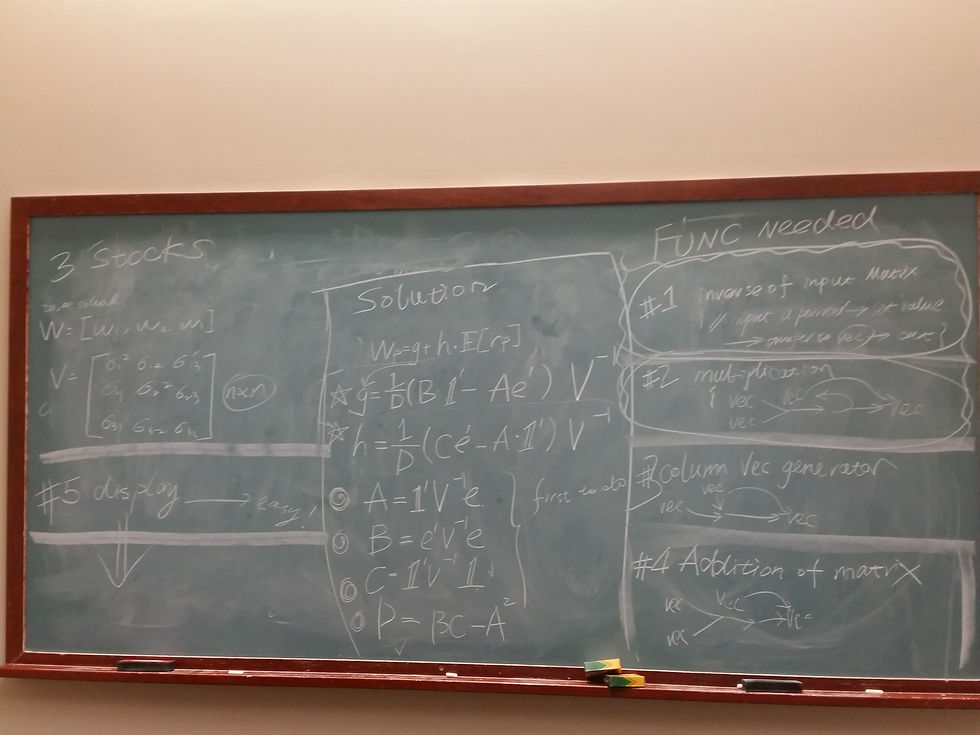 3 Stocks
W = [w₁, w₂, w₃]
V = [σ₁² σ₁₂ σ₁₃
σ₂₁ σ₂² σ₂₃
σ₃₁ σ₃₂ σ₃₃]
n×n
#5 display → easy!
Solution
Wp = g + h·E[rp]
☆ g = 1/D (B 1' − Ae') V⁻¹
☆ h = 1/D (Ce' − A·1') V⁻¹
A = 1'V⁻¹e
B = e'V⁻¹e
C = 1'V⁻¹1
D = BC − A²
first to do
FUNC needed
#1 inverse of input Matrix
// input a pannel → set value
→ vec →
#2 multiplication
vec vec
vec vec
#3 column Vec generator
vec
vec vec
#4 Addition of matrix
vec vec
vec vec